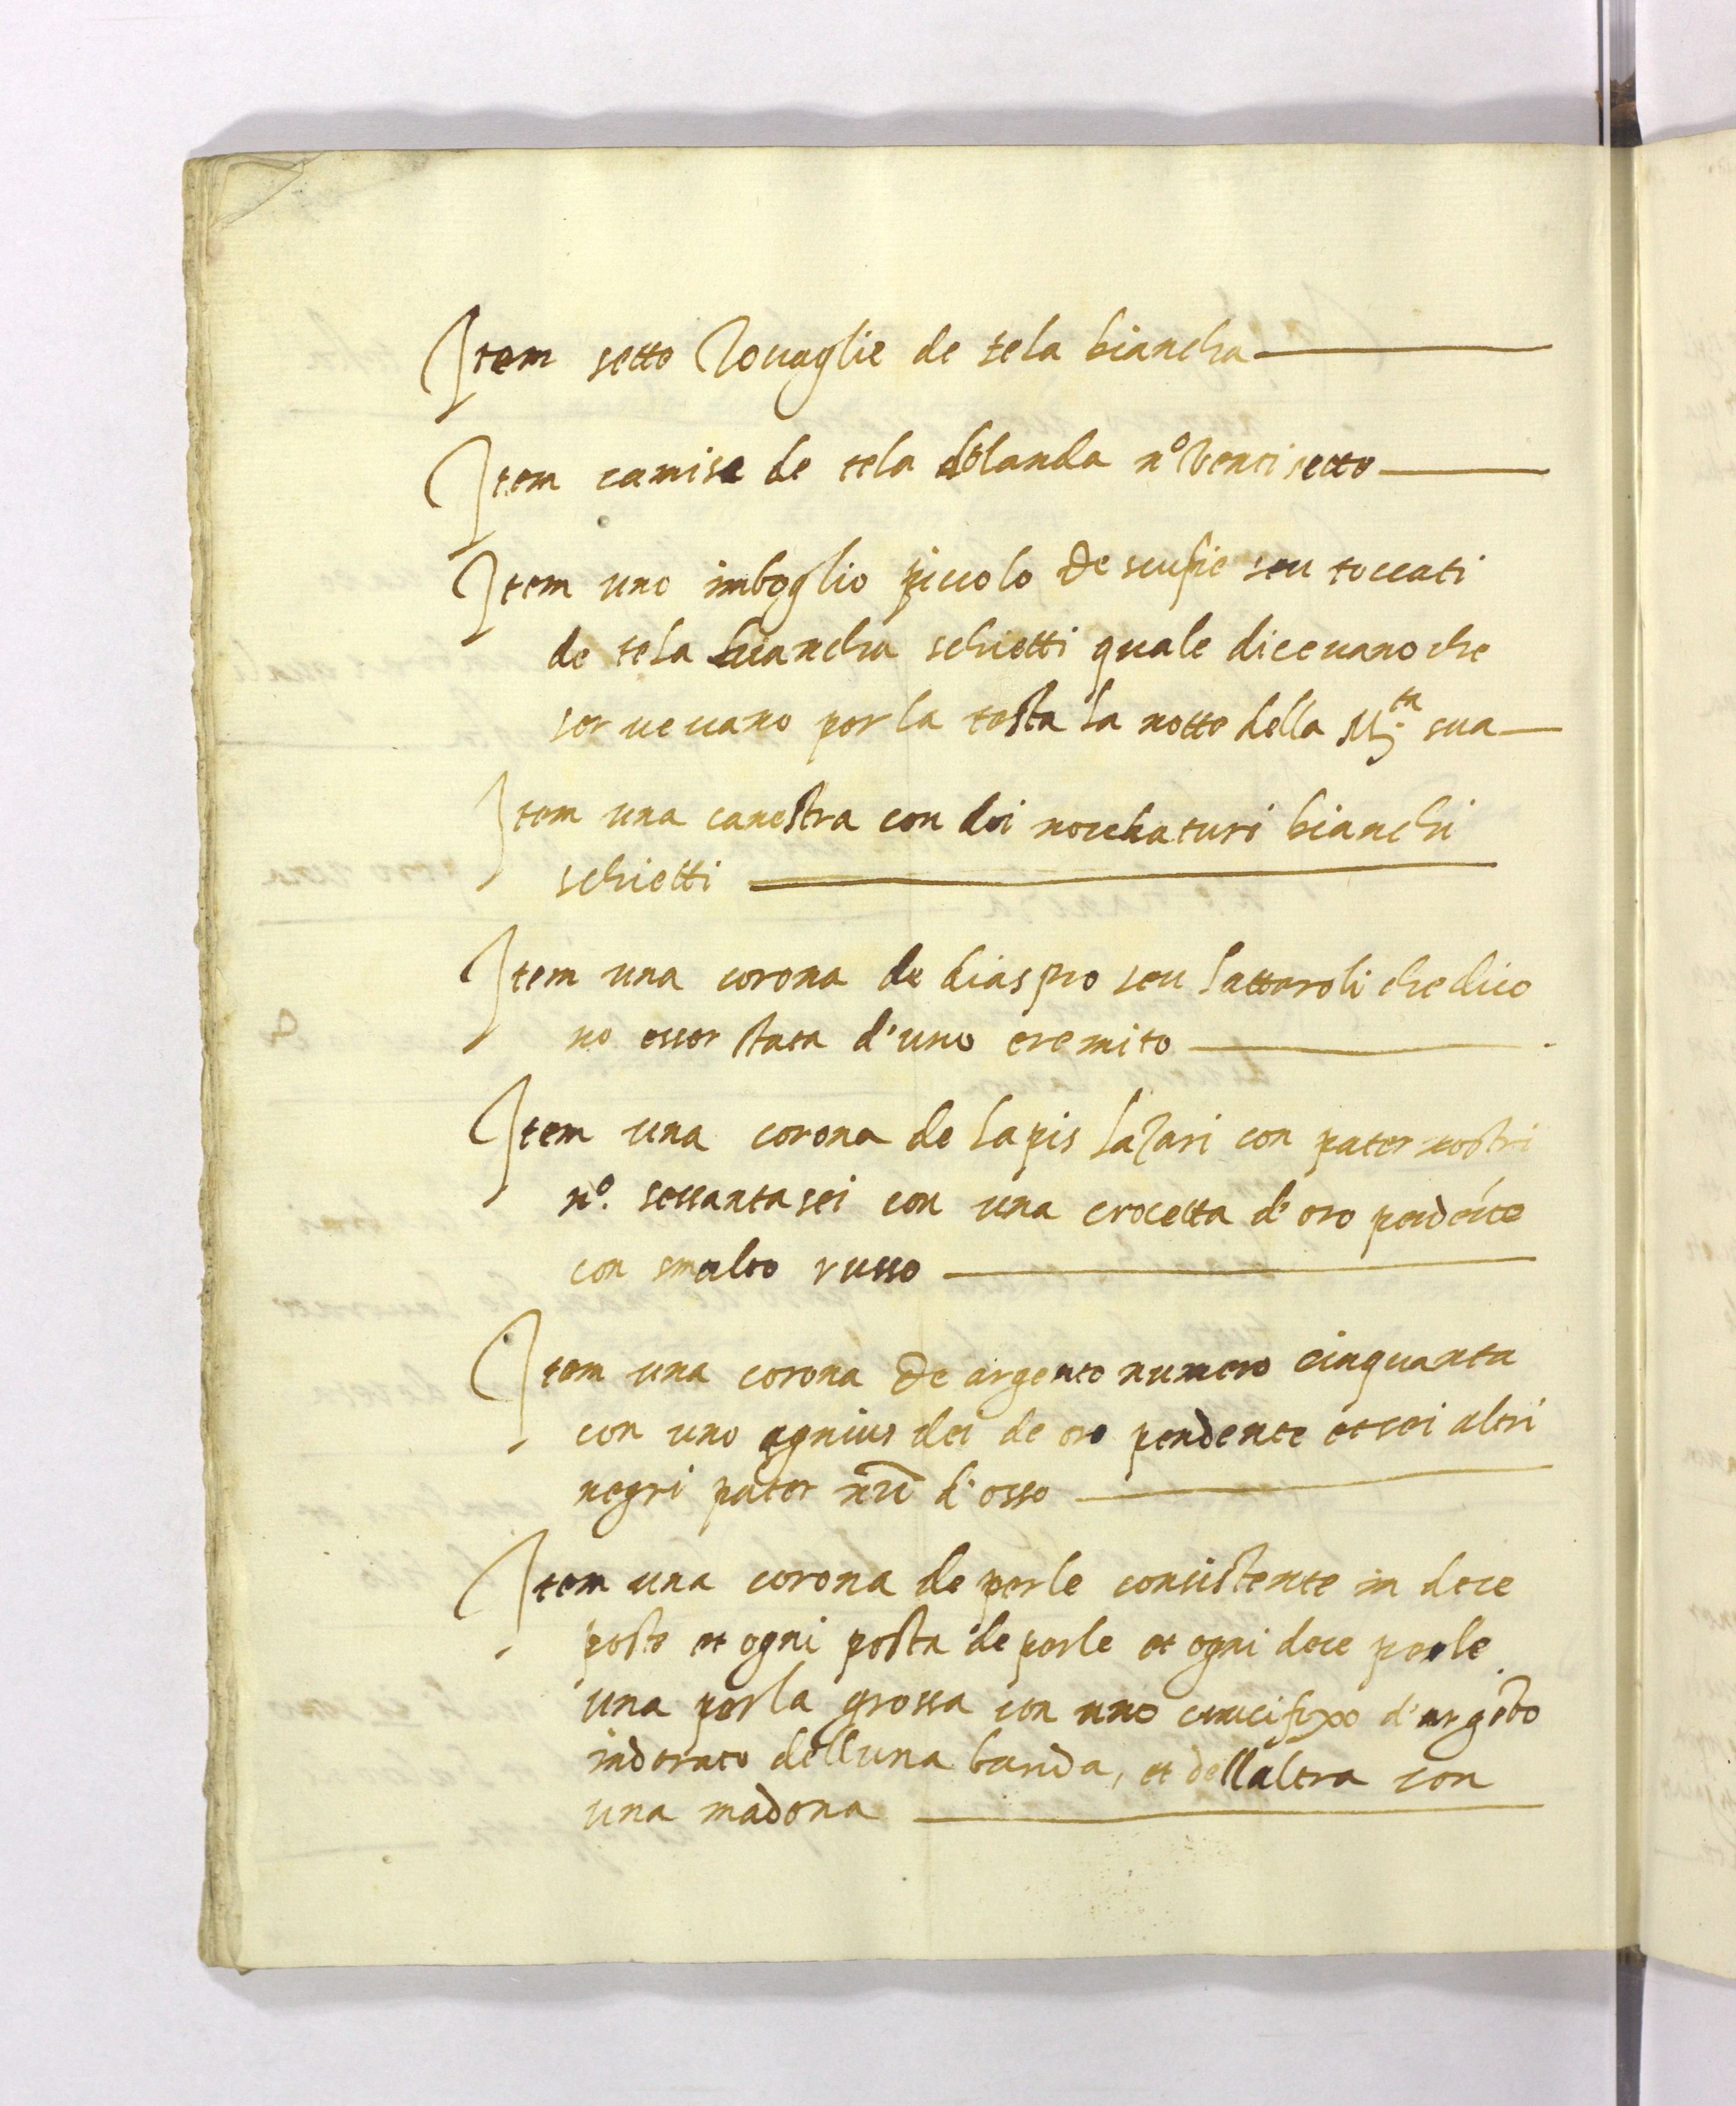 Item sette Tovaglie de tela biancha
Item camise de tela d'olanda n.o Ventisette
Item uno imboglio piccolo de scufie seu toccati
de tela biancha schietti quale dicevano che
servevano per la testa la notte della M.tà sua
Item una canestra con doi mocchaturi bianchi
schietti
Item una corona de diaspro seu lattaroli che dico
no esser stata d'uno eremito
Item una corona de lapis lazari con pater nostri
n.o sessantasei con una crocetta d'oro pendẽte
con smalto russo
Item una corona de argento numero cinquanta
con uno agnius dei de oro pendente et sei altri
negri pater nri d'osso
Item una corona de perle consistente in dece
poste et ogni posta de perle et ogni dece perle
una perla grossa con uno crucifixo d'argẽto
indorato delluna banda, et dellaltra con
una madona